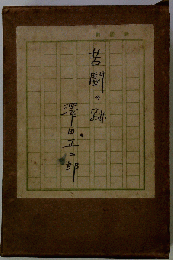 苦闘の跡
澤田正二郎